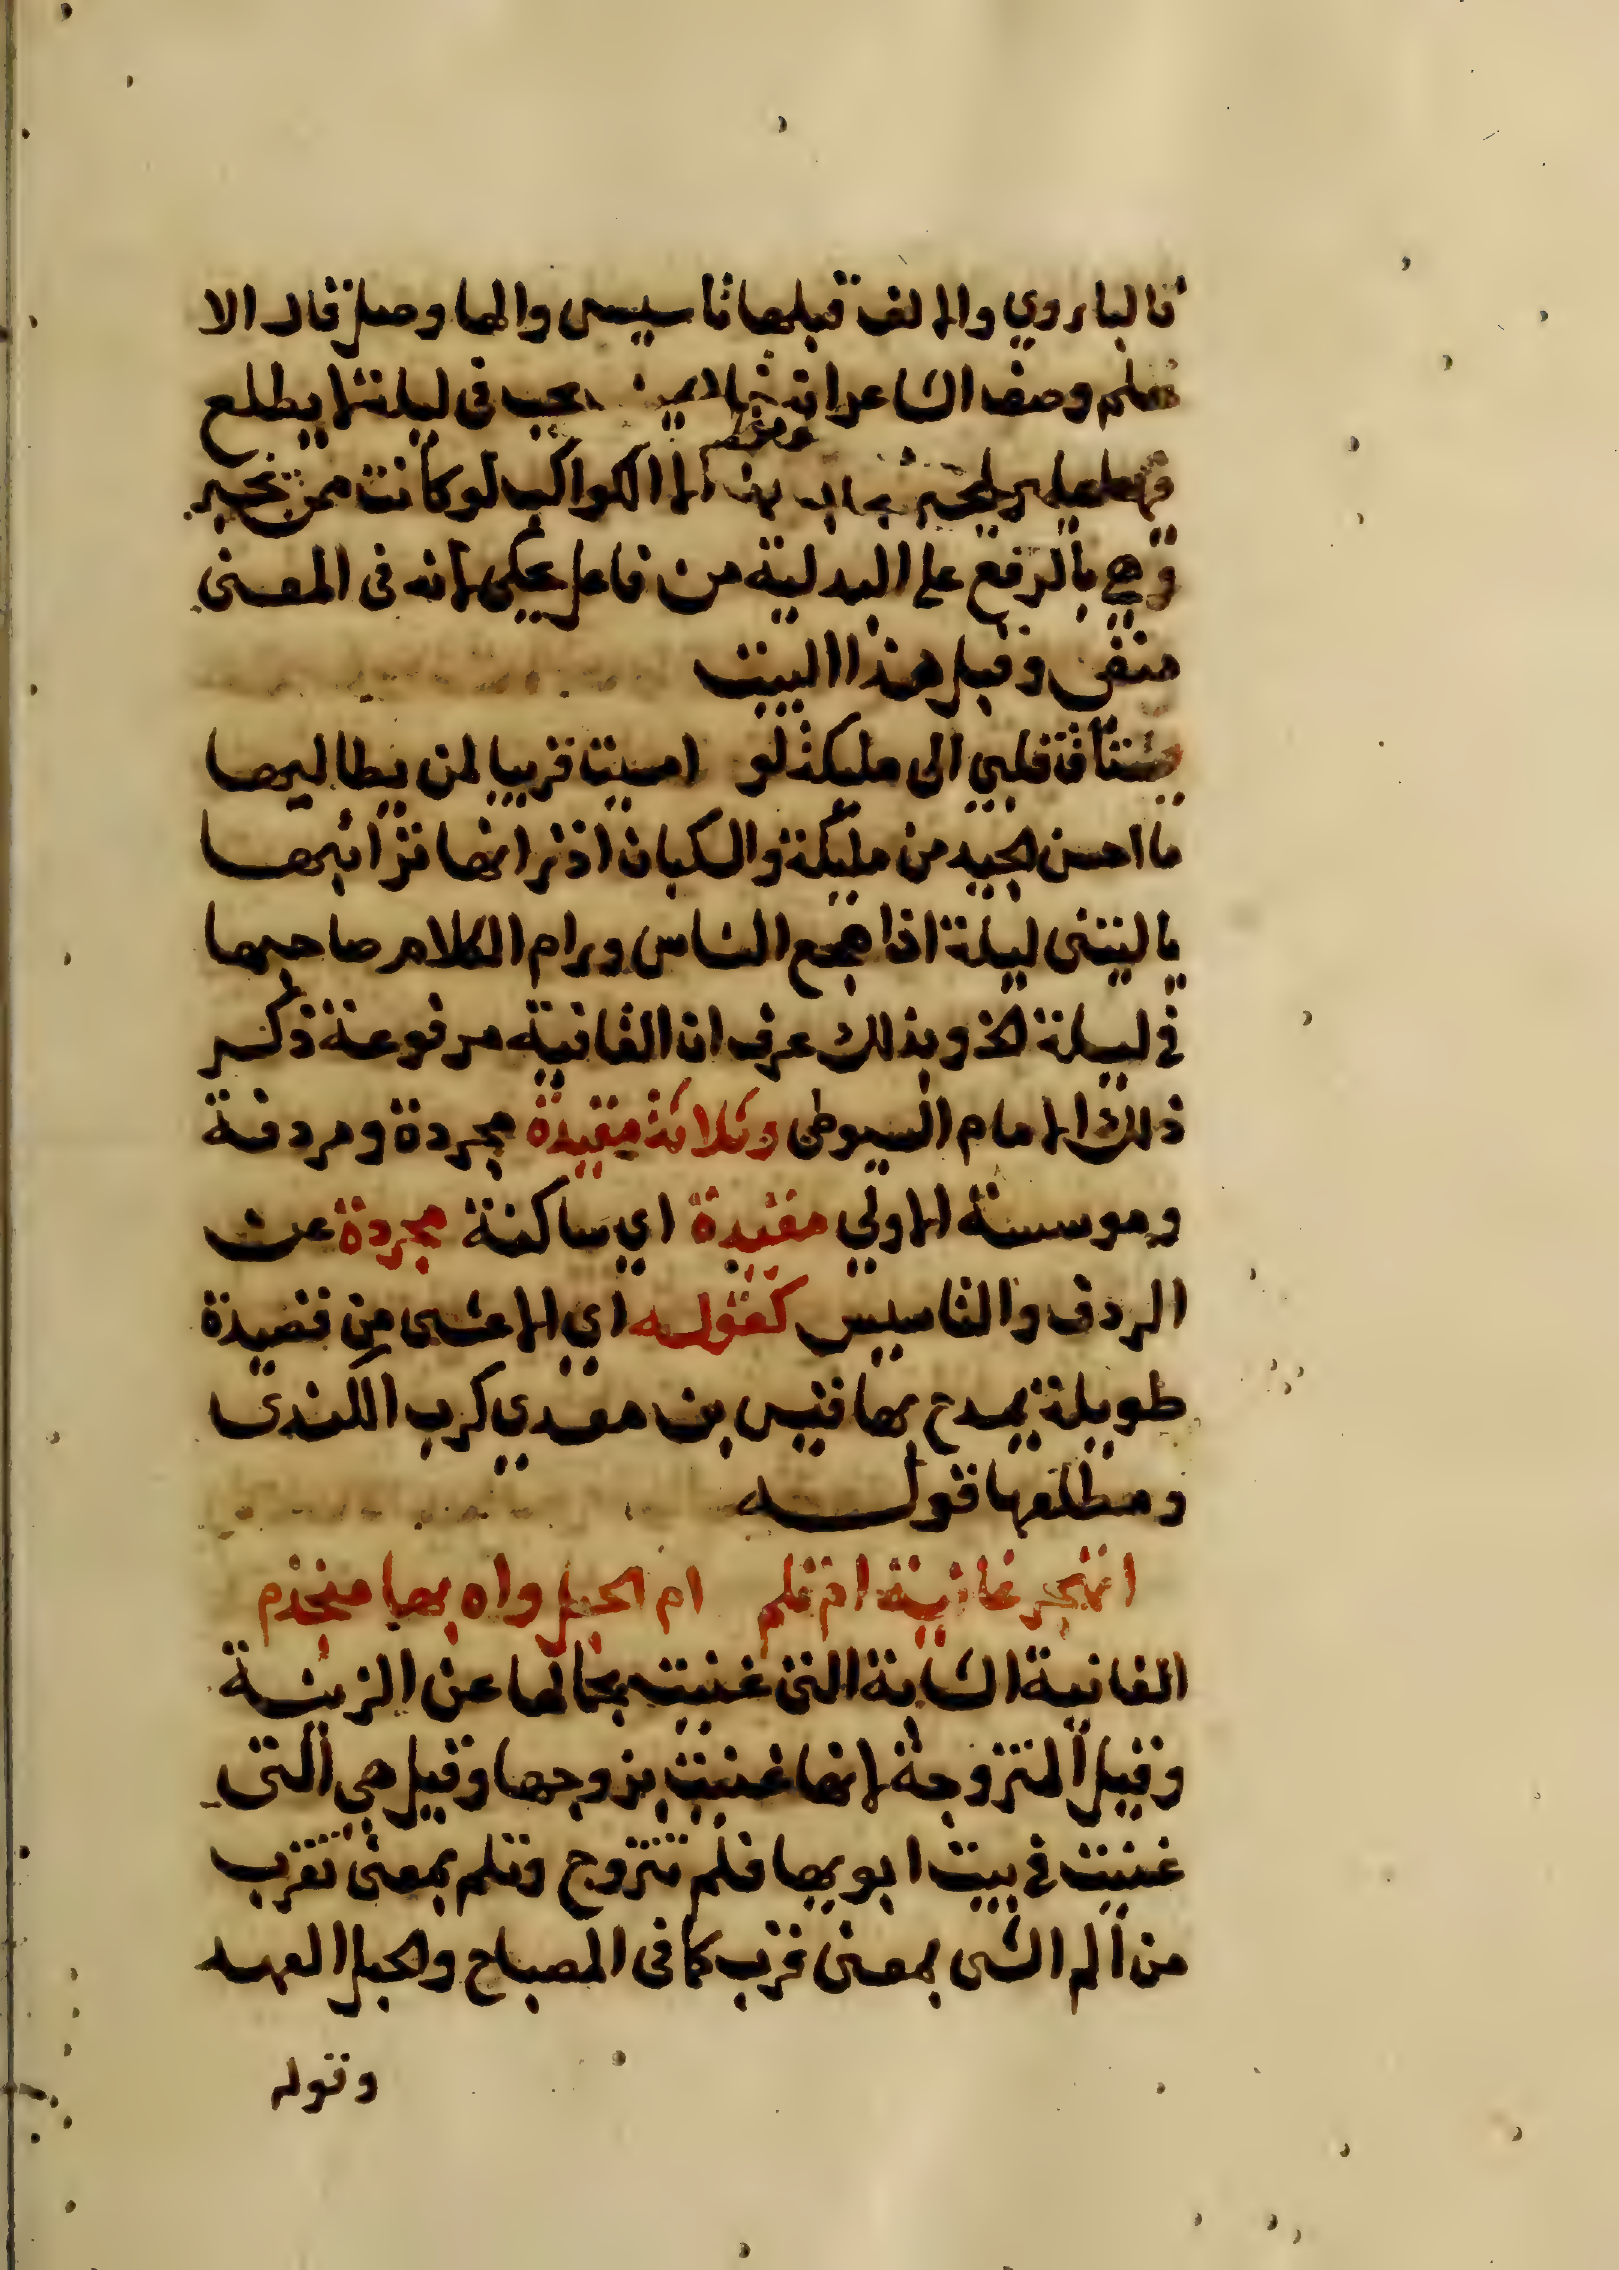 فالباء روي والالف قبلها تاسيس والها وصل قال الا
وصف الشاعر انه بمن يحب في ليلة لا يطلع
الا الكواكب لو كانت ممن تخبر
وهي بالرفع على البدلية من فاعل يحكي لانه في المعنى
منفي وقبل هذا البيت
يشتاق قلبي الى مليكة لو امست قريبا لمن يطالبها
ما احسن الجيد من مليكة والكبات اذ زانها ترائبها
يا ليتني ليلة اذا هجع الناس ورام الكلام صاحبها
في ليلة الخ وبذلك عرف ان القافية مرفوعة ذكر
ذلك الامام السيوطي وثلاثة مقيدة مجردة ومردفة
وموسسة الاولي مقيدة اي ساكنة مجردة عن
الردف والتاسيس كقوله اي الاعشى من قصيدة
طويلة يمدح بها قيس بن معدي كرب الكندي
ومطلعها قوله
اتهجر غانية ام تلم ام الحبل واه بها منجذم
الغانية الشابة التي غنيت بجمالها عن الزينة
وقيل المتزوجة لانها غنيت بزوجها وقيل هي التي
غنيت في بيت ابويها فلم تتزوج وتلم بمعنى تقرب
من الم الشي بمعنى قرب كما في المصباح والحبل العهد
وقوله